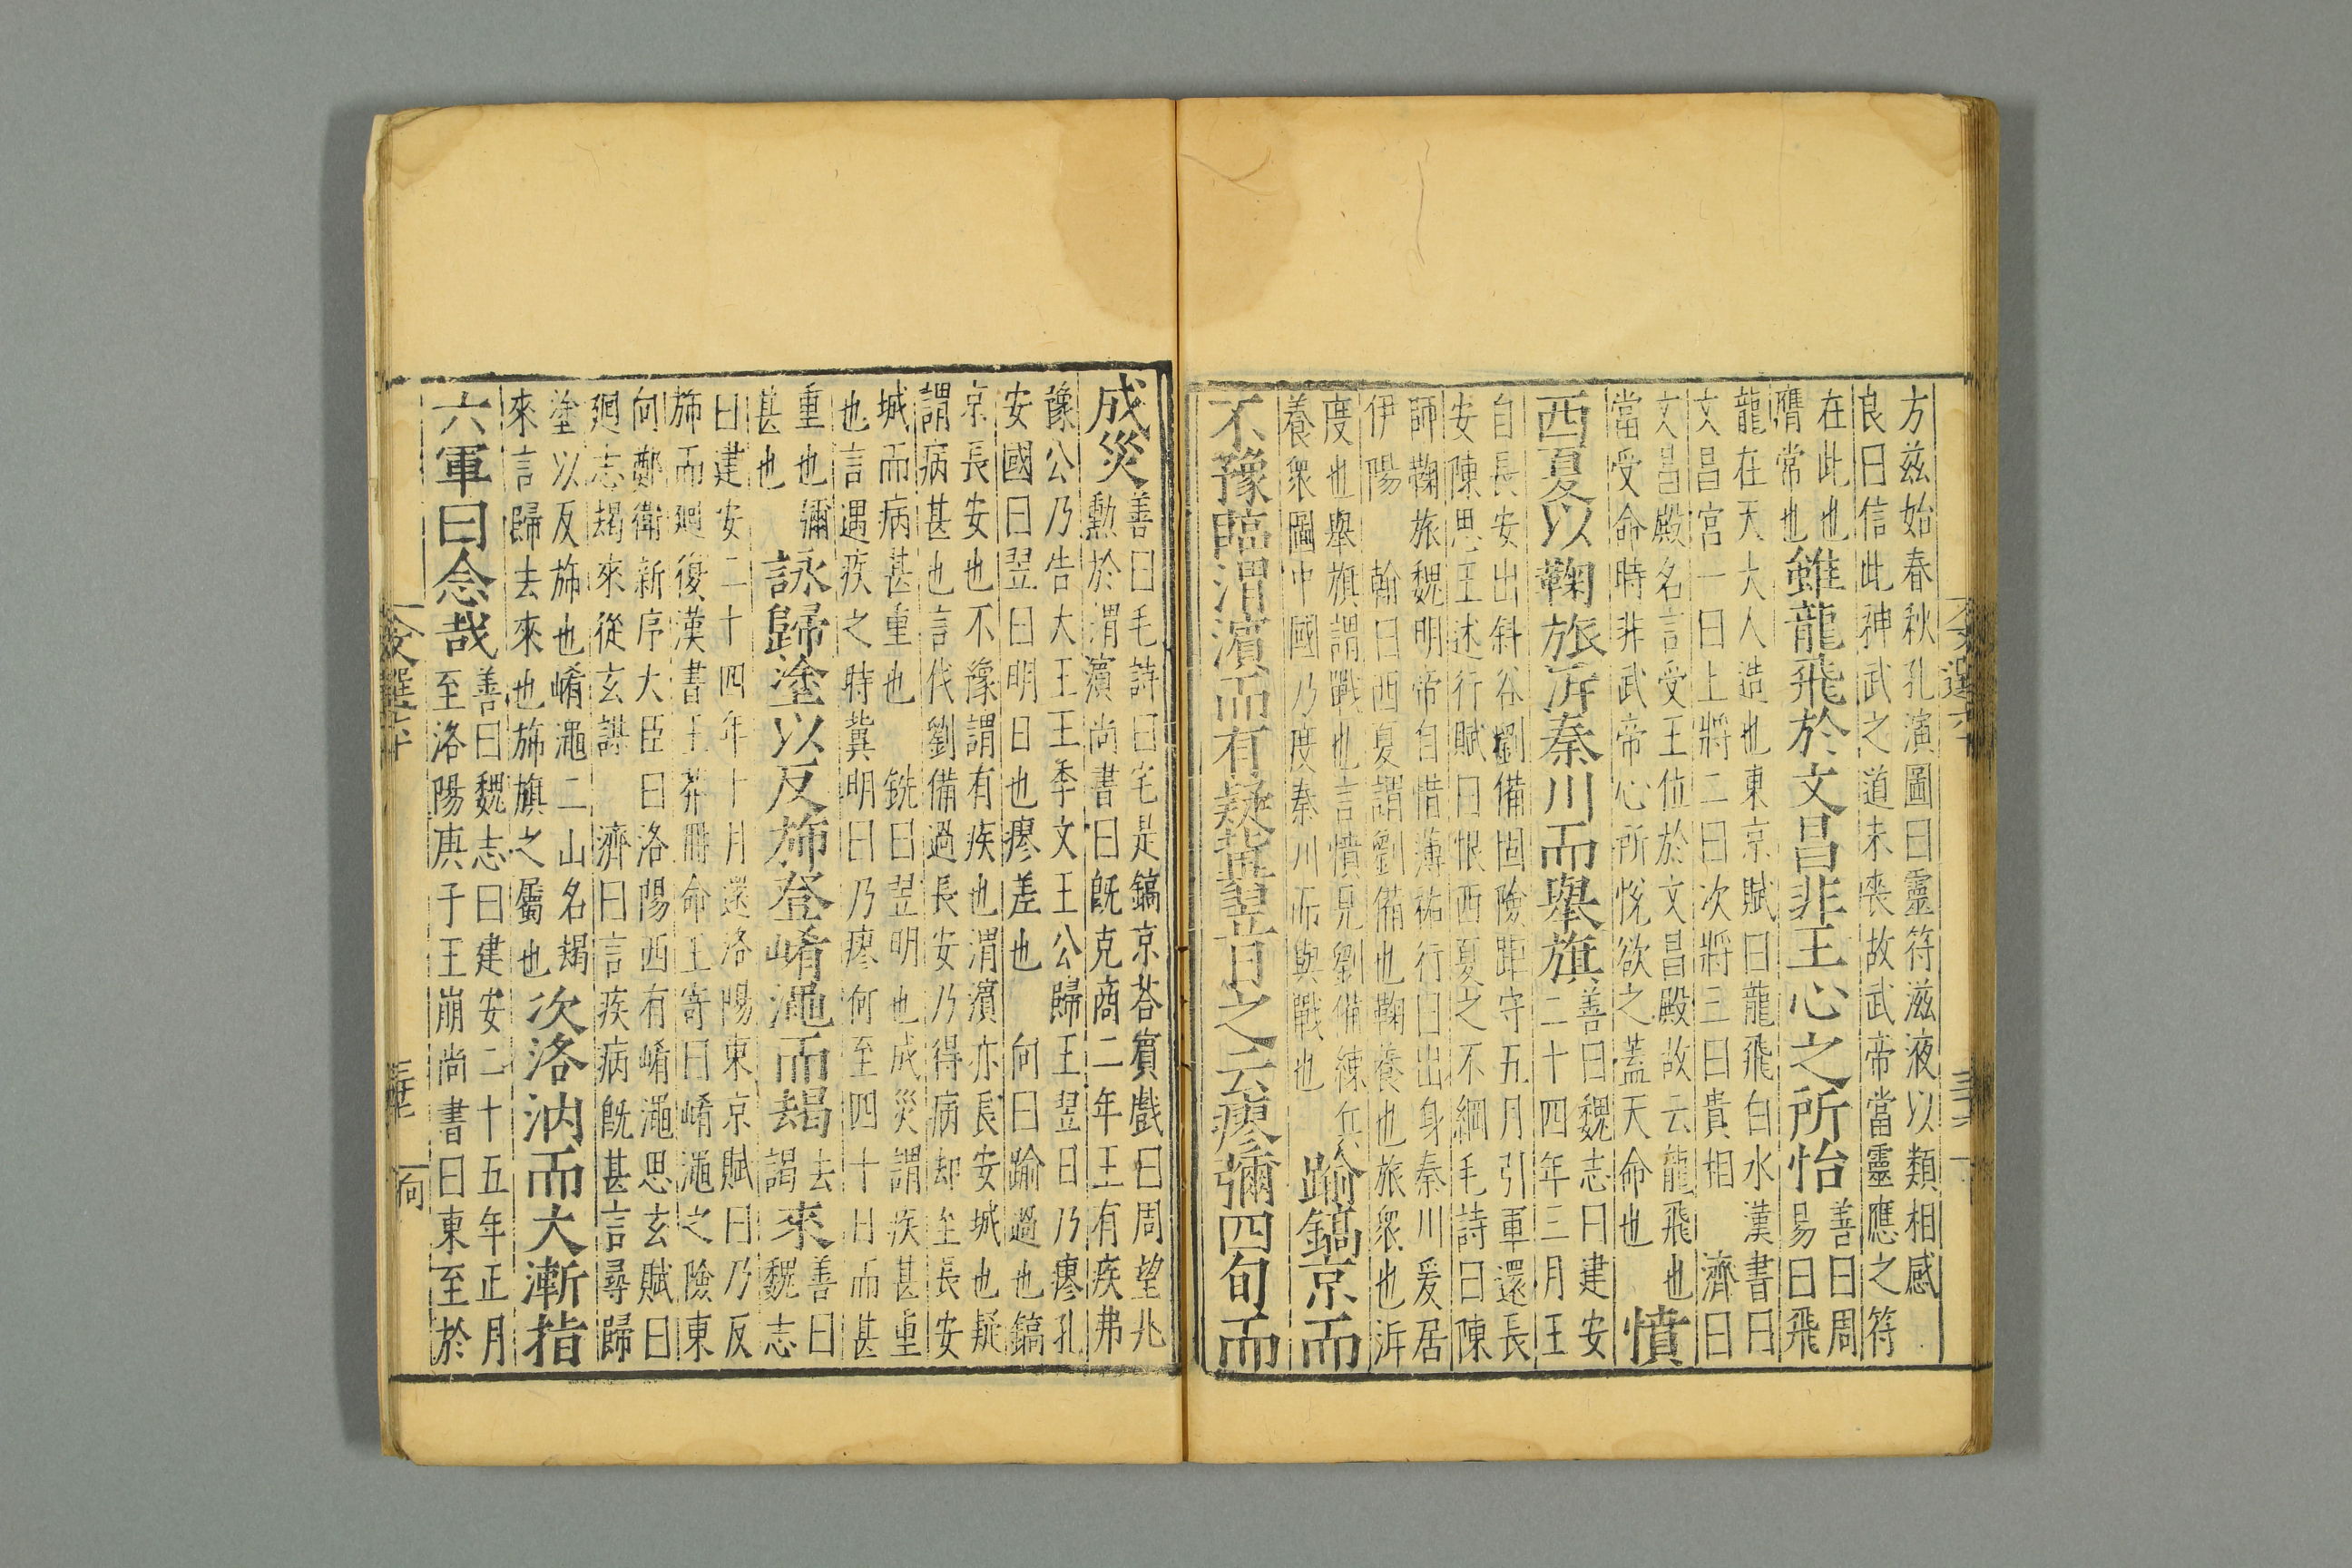 方兹始春秋孔演圖曰靈符滋液以類相感
良曰信此神武之道未喪故武帝當靈應之符
在此也
膺常也
雖龍飛於文昌非王心之所怡
善曰周
易曰飛
龍在天大人造也東京賦曰龍飛白水漢書曰
文昌宮一曰上將二曰次將三曰貴相 濟曰
文昌殿名言受王位於文昌殿故云龍飛也
當受命時非武帝心所悅欲之蓋天命也
憤
西夏以鞠旅泝秦川而舉旗
善曰魏志曰建安
二十四年三月王
自長安出斜谷劉備固險距守五月引軍還長
安陳思王述行賦曰恨西夏之不綱毛詩曰陳
師鞠旅魏明帝自惜薄祐行曰出身秦川爰居
伊陽 翰曰西夏謂劉備也鞠養也旅衆也泝
度也舉旗謂戰也言憤見劉備練兵
養衆圖中國乃度秦川而與戰也
踰鎬京而
不豫臨渭濱而有疑冀翌日之云瘳彌四旬而
成災
善曰毛詩曰宅是鎬京荅賓戲曰周望兆
勲於渭濱尚書曰旣克商二年王有疾弗
豫公乃告大王王季文王公歸王翌日乃瘳孔
安國曰翌曰明日也瘳差也 向曰踰過也鎬
京長安也不豫謂有疾也渭濱亦長安城也疑
謂病甚也言伐劉備過長安乃得病却至長安
城而病甚重也 銑曰翌明也成災謂疾甚重
也言遇疾之時冀明日乃瘳何至四十日而甚
重也彌
甚也
詠歸塗以反斾登崤澠而朅
去
謁
來
善曰
魏志
曰建安二十四年十月還洛陽東京賦曰乃反
斾而廻復漢書王莽冊命王寄曰崤澠之險東
向鄭衛新序大臣曰洛陽西有崤澠思玄賦曰
廻志朅來從玄諆 濟曰言疾病旣甚言尋歸
塗以反斾也崤澠二山名朅
來言歸去來也斾旗之屬也
次洛汭而大漸指
六軍曰念哉
善曰魏志曰建安二十五年正月
至洛陽庚子王崩尚書曰東至於